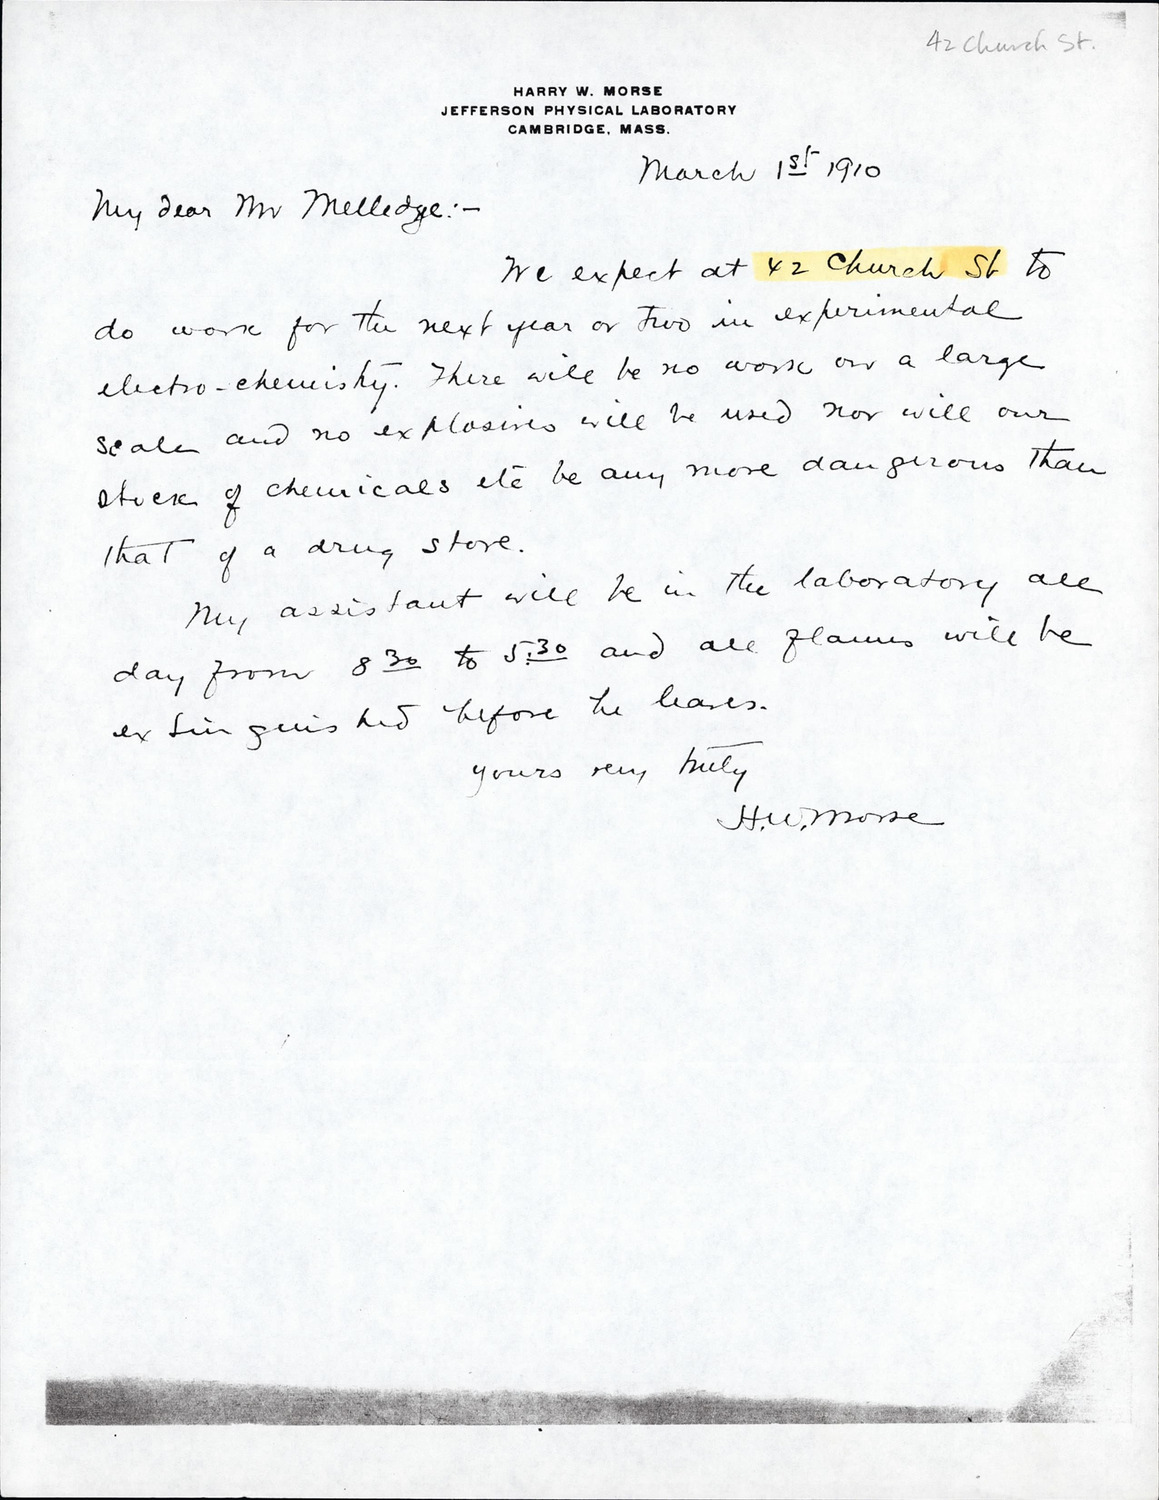 42 Church St.
HARRY W. MORSE
JEFFERSON PHYSICAL LABORATORY
CAMBRIDGE, MASS.
March 1st 1910
My dear Mr Melledge:-
We expect at 42 Church St to
do work for the next year or two in experimental
electro-chemistry. There will be no work on a large
scale and no explosives will be used nor will our
stock of chemicals etc be any more dangerous than
that of a drug store.
My assistant will be in the laboratory all
day from 8 30 to 5.30 and all flames will be
extinguished before he leaves.
yours very truly
H.W. Morse